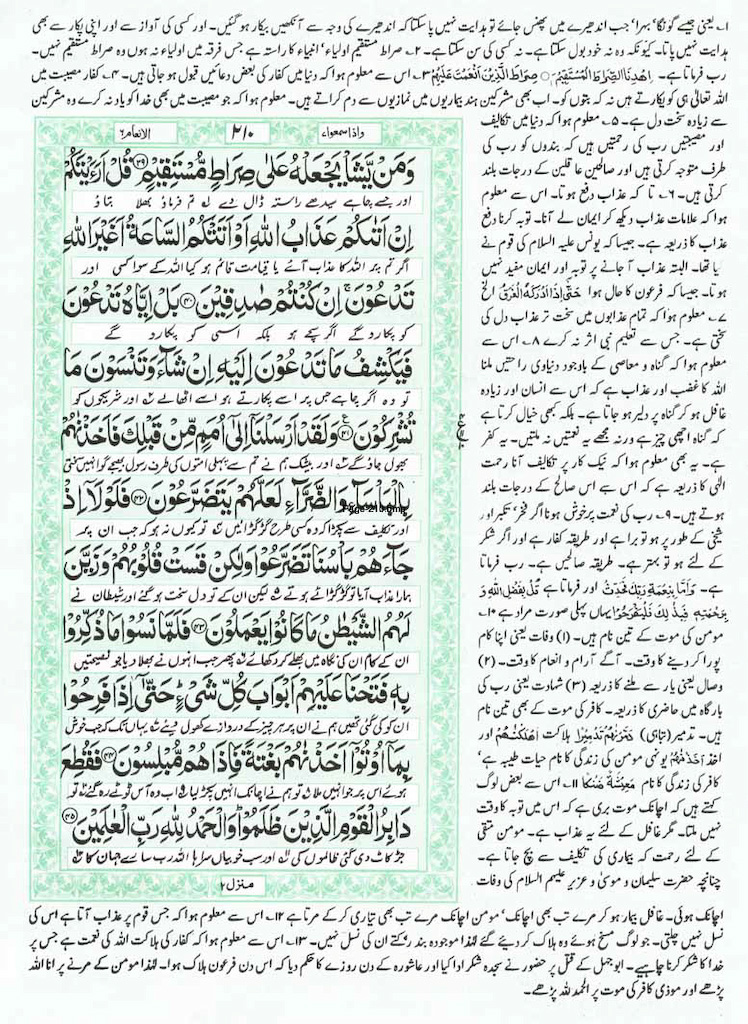 ۱۔ یعنی جیسے گونگا' بہرا' جب اندھیرے میں پھنس جائے تو ہدایت نہیں پا سکتا کہ اندھیرے کی وجہ سے آنکھیں بیکار ہو گئیں۔ اور کسی کی آواز سے اور اپنی پکار سے بھی
ہدایت نہیں پاتا۔ کیونکہ وہ نہ خود بول سکتا ہے۔ نہ کسی کی سن سکتا ہے۔ ۲۔ صراط مستقیم اولیاء' انبیاء کا راستہ ہے جس فرقہ میں اولیاء نہ ہوں وہ صراط مستقیم نہیں۔
رب فرماتا ہے۔ اِهْدِنَا الصِّرَاطَ الْمُسْتَقِيْمَ ۝ صِرَاطَ الَّذِيْنَ اَنْعَمْتَ عَلَيْهِمْ ۳۔ اس سے معلوم ہوا کہ دنیا میں کفار کی بعض دعائیں قبول ہو جاتی ہیں۔ ۴۔ کفار مصیبت میں
اللہ تعالٰی ہی کو پکارتے ہیں نہ کہ بتوں کو۔ اب بھی مشرکین ہند بیماریوں میں نمازیوں سے دم کراتے ہیں۔ معلوم ہوا کہ جو مصیبت میں بھی خدا کو یاد نہ کرے وہ مشرکین
سے زیادہ سخت دل ہے۔ ۵۔ معلوم ہوا کہ دنیا میں تکالیف
اور مصیبتیں رب کی رحمتیں ہیں کہ بندوں کو رب کی
طرف متوجہ کرتی ہیں اور صالحین عاقلین کے درجات بلند
کرتی ہیں۔ ۶۔ تا کہ عذاب دفع ہوتا۔ اس سے معلوم
ہوا کہ علامات عذاب دیکھ کر ایمان لے آنا۔ توبہ کرنا دفع
عذاب کا ذریعہ ہے۔ جیسا کہ یونس علیہ السلام کی قوم نے
پایا تھا۔ البتہ عذاب آ جانے پر توبہ اور ایمان مفید نہیں
ہوتا۔ جیسا کہ فرعون کا حال ہوا حَتّٰى اِذَا اَدْرَكَهُ الْغَرَقُ الخ
۷۔ معلوم ہوا کہ تمام عذابوں میں سخت تر عذاب دل کی
سختی ہے۔ جس سے تعلیم نبی اثر نہ کرے ۸۔ اس سے
معلوم ہوا کہ گناہ و معاصی کے باوجود دنیاوی راحتیں ملنا
اللہ کا غضب اور عذاب ہے کہ اس سے انسان اور زیادہ
غافل ہو کر گناہ پر دلیر ہو جاتا ہے۔ بلکہ کبھی خیال کرتا ہے
کہ گناہ اچھی چیز ہے ورنہ مجھے یہ نعمتیں نہ ملتیں۔ یہ کفر
ہے۔ یہ بھی معلوم ہوا کہ نیک کار پر تکالیف آنا رحمت
الٰہی کا ذریعہ ہے کہ اس سے اس صالح کے درجات بلند
ہوتے ہیں۔ ۹۔ رب کی نعمت پر خوش ہونا اگر فخر' تکبر اور
شیخی کے طور پر ہو تو برا ہے اور طریقہ کفار ہے اور اگر شکر
کے لئے ہو تو بہتر ہے۔ طریقہ صالحین ہے۔ رب فرماتا
ہے۔ وَاَمَّا بِنِعْمَةِ رَبِّكَ فَحَدِّثْ اور فرماتا ہے قُلْ بِفَضْلِ اللهِ وَ
بِرَحْمَتِهٖ فَبِذٰلِكَ فَلْيَفْرَحُوْا یہاں پہلی صورت مراد ہے ۱۰۔
مومن کی موت کے تین نام ہیں۔ (۱) وفات یعنی اپنا کام
پورا کر دینے کا وقت۔ آگے آرام و انعام کا وقت۔ (۲)
وصال یعنی یار سے ملنے کا ذریعہ (۳) شہادت یعنی رب کی
بارگاہ میں حاضری کا ذریعہ۔ کافر کی موت کے بھی تین نام
ہیں۔ تدمیر (تباہی) فَدَمَّرْنٰهُمْ تَدْمِيْرًا ہلاکت اَهْلَكْنٰهُمْ اور
اخذ اَخَذْنٰهُمْ یونہی مومن کی زندگی کا نام حیات طیبہ ہے'
کافر کی زندگی کا نام مَعِيْشَةً ضَنْكًا ۱۱۔ اس سے بعض لوگ
کہتے ہیں کہ اچانک موت بری ہے کہ اس میں توبہ کا وقت
نہیں ملتا۔ مگر غافل کے لئے یہ عذاب ہے۔ مومن متقی
کے لئے رحمت کہ بیماری کی تکلیف سے بچ جاتا ہے۔
چنانچہ حضرت سلیمان و موسیٰ و عزیر علیہم السلام کی وفات
واذا سمعوا۷
۲۱۰
الانعام۶
وَمَنْ يَّشَاْ يَجْعَلْهُ عَلٰى صِرَاطٍ مُّسْتَقِيْمٍ ۝۳۹ قُلْ اَرَءَيْتَكُمْ
اور جسے چاہے سیدھے راستہ ڈال دے ۲ تم فرماؤ بھلا بتاؤ
اِنْ اَتٰىكُمْ عَذَابُ اللهِ اَوْ اَتَتْكُمُ السَّاعَةُ اَغَيْرَ اللهِ
اگر تم پر اللہ کا عذاب آئے یا قیامت قائم ہو کیا اللہ کے سوا کسی اور
تَدْعُوْنَ ۚ اِنْ كُنْتُمْ صٰدِقِيْنَ ۝۴۰ بَلْ اِيَّاهُ تَدْعُوْنَ
کو پکارو گے اگر سچے ہو بلکہ اسی کو پکارو گے
فَيَكْشِفُ مَا تَدْعُوْنَ اِلَيْهِ اِنْ شَآءَ وَتَنْسَوْنَ مَا
تو وہ اگر چاہے جس پر اسے پکارتے ہو اسے اٹھا لے ۳ اور شریکوں کو
تُشْرِكُوْنَ ۝۴۱ وَلَقَدْ اَرْسَلْنَآ اِلٰٓى اُمَمٍ مِّنْ قَبْلِكَ فَاَخَذْنٰهُمْ
بھول جاؤ گے ۴ اور بیشک ہم نے تم سے پہلی امتوں کی طرف رسول بھیجے تو انہیں سختی
بِالْبَاْسَآءِ وَالضَّرَّآءِ لَعَلَّهُمْ يَتَضَرَّعُوْنَ ۝۴۲ فَلَوْلَآ اِذْ
اور تکلیف سے پکڑا کہ وہ کسی طرح گڑگڑائیں ۵ تو کیوں نہ ہوا کہ جب ان پر
جَآءَهُمْ بَاْسُنَا تَضَرَّعُوْا وَلٰكِنْ قَسَتْ قُلُوْبُهُمْ وَزَيَّنَ
ہمارا عذاب آیا تو گڑگڑائے ہوتے ۶ لیکن ان کے تو دل سخت ہو گئے اور شیطان نے
لَهُمُ الشَّيْطٰنُ مَا كَانُوْا يَعْمَلُوْنَ ۝۴۳ فَلَمَّا نَسُوْا مَا ذُكِّرُوْا
ان کے کام ان کی نگاہ میں بھلے کر دکھائے ۷ پھر جب انہوں نے بھلا دیا جو نصیحتیں
بِهٖ فَتَحْنَا عَلَيْهِمْ اَبْوَابَ كُلِّ شَيْءٍ ؕ حَتّٰٓى اِذَا فَرِحُوْا
ان کو کی گئی تھیں ہم نے ان پر ہر چیز کے دروازے کھول دیئے ۸ یہاں تک کہ جب خوش
بِمَآ اُوْتُوْٓا اَخَذْنٰهُمْ بَغْتَةً فَاِذَا هُمْ مُّبْلِسُوْنَ ۝۴۴ فَقُطِعَ
ہوئے اس پر جو انہیں ملا ۹ تو ہم نے اچانک انہیں پکڑ لیا ۱۰ اب وہ آس ٹوٹے رہ گئے ۱۱ تو
دَابِرُ الْقَوْمِ الَّذِيْنَ ظَلَمُوْا ؕ وَالْحَمْدُ لِلّٰهِ رَبِّ الْعٰلَمِيْنَ ۝۴۵
جڑ کاٹ دی گئی ظالموں کی ۱۲ اور سب خوبیاں سراہا اللہ رب سارے جہان کا ۱۳
منزل۲
اچانک ہوئی۔ غافل بیمار ہو کر مرے تب بھی اچانک' مومن اچانک مرے تب بھی تیاری کر کے مرتا ہے ۱۲۔ اس سے معلوم ہوا کہ جس قوم پر عذاب آتا ہے اس کی
نسل نہیں چلتی۔ جو لوگ مسخ ہوئے وہ ہلاک کر دیئے گئے لہٰذا موجودہ بندر' کتے ان کی نسل نہیں۔ ۱۳۔ اس سے معلوم ہوا کہ کفار کی ہلاکت اللہ کی نعمت ہے جس پر
خدا کا شکر کرنا چاہیے۔ ابو جہل کے قتل پر حضور نے سجدہ شکر ادا کیا اور عاشورہ کے دن روزے کا حکم دیا کہ اس دن فرعون ہلاک ہوا۔ لہٰذا مومن کے مرنے پر انا للہ
پڑھے اور موذی کافر کی موت پر الحمد للہ پڑھے۔